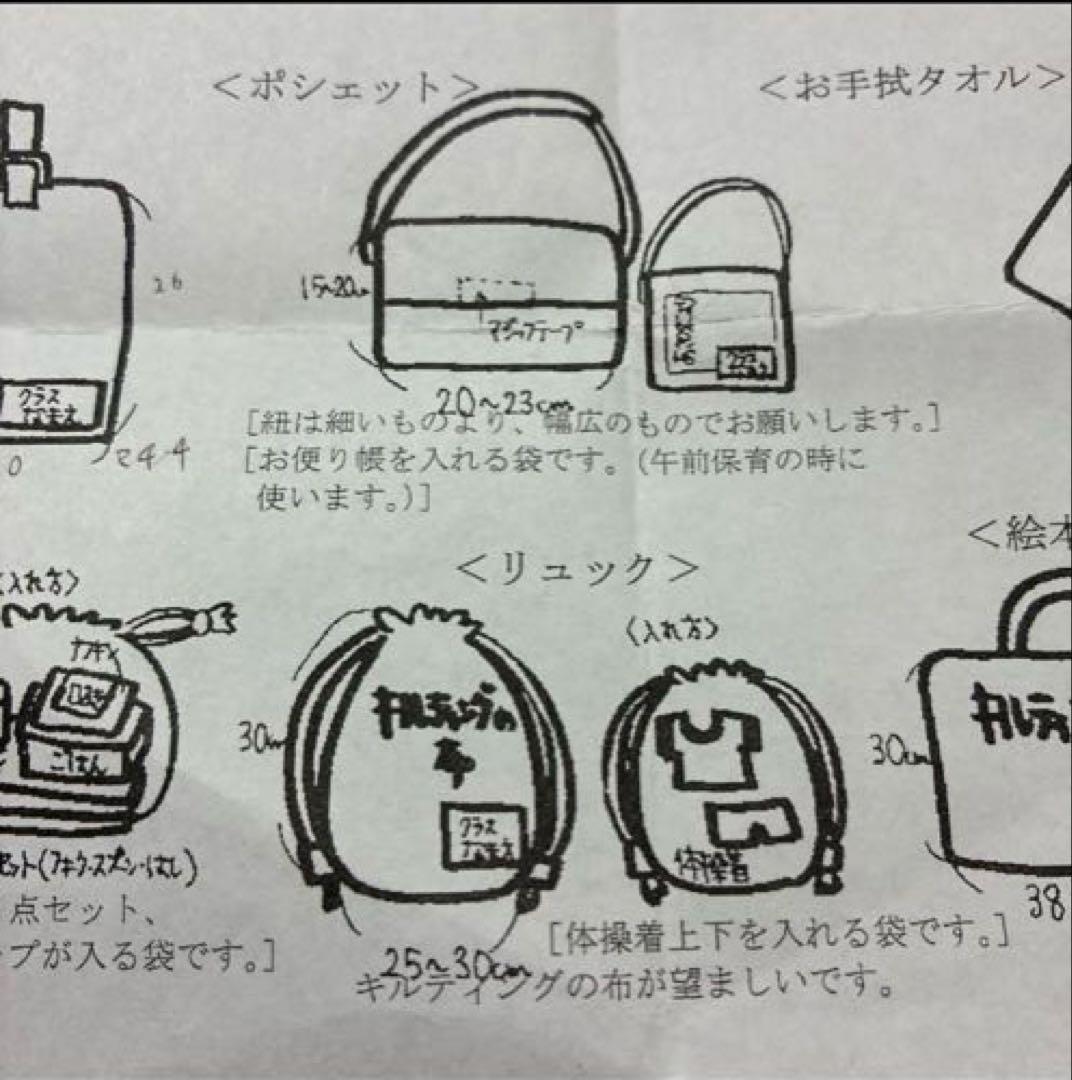 ＜ポシェット＞
＜お手拭タオル＞
15~20cm
マジックテープ
20~23cm
26
クラス
なまえ
0
マチ4
クラス
なまえ
[紐は細いものより、幅広のものでお願いします。]
[お便り帳を入れる袋です。(午前保育の時に
使います。)]
＜リュック＞
＜絵本
〈入れ方〉
ナフキン
ごはん
セット(フォーク・スプーン・はし)
点セット、
プが入る袋です。]
30cm
キルティングの
布
クラス
なまえ
25~30cm
〈入れ方〉
体操着
[体操着上下を入れる袋です。]
キルティングの布が望ましいです。
30cm
キルティ
38